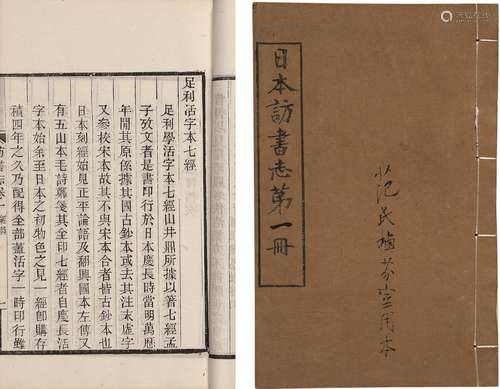 日本訪書志第一冊
足利活字本七經
足利學活字本七經山井鼎所據以著七經孟
子攷文者是書印行於日本慶長時當明萬曆
年間其原係據其國古鈔本或去其注末虛字
又參校宋本故其不與宋本合者皆古鈔本也
日本刻經始見正平論語及翻興國本左傳又
有五山本毛詩鄭箋其全印七經者自慶長活
字本始余至日本之初物色之見一經即購存
積四年之久乃配得全部蓋活字一時印行雖
訪書志卷一
范氏芬室用本